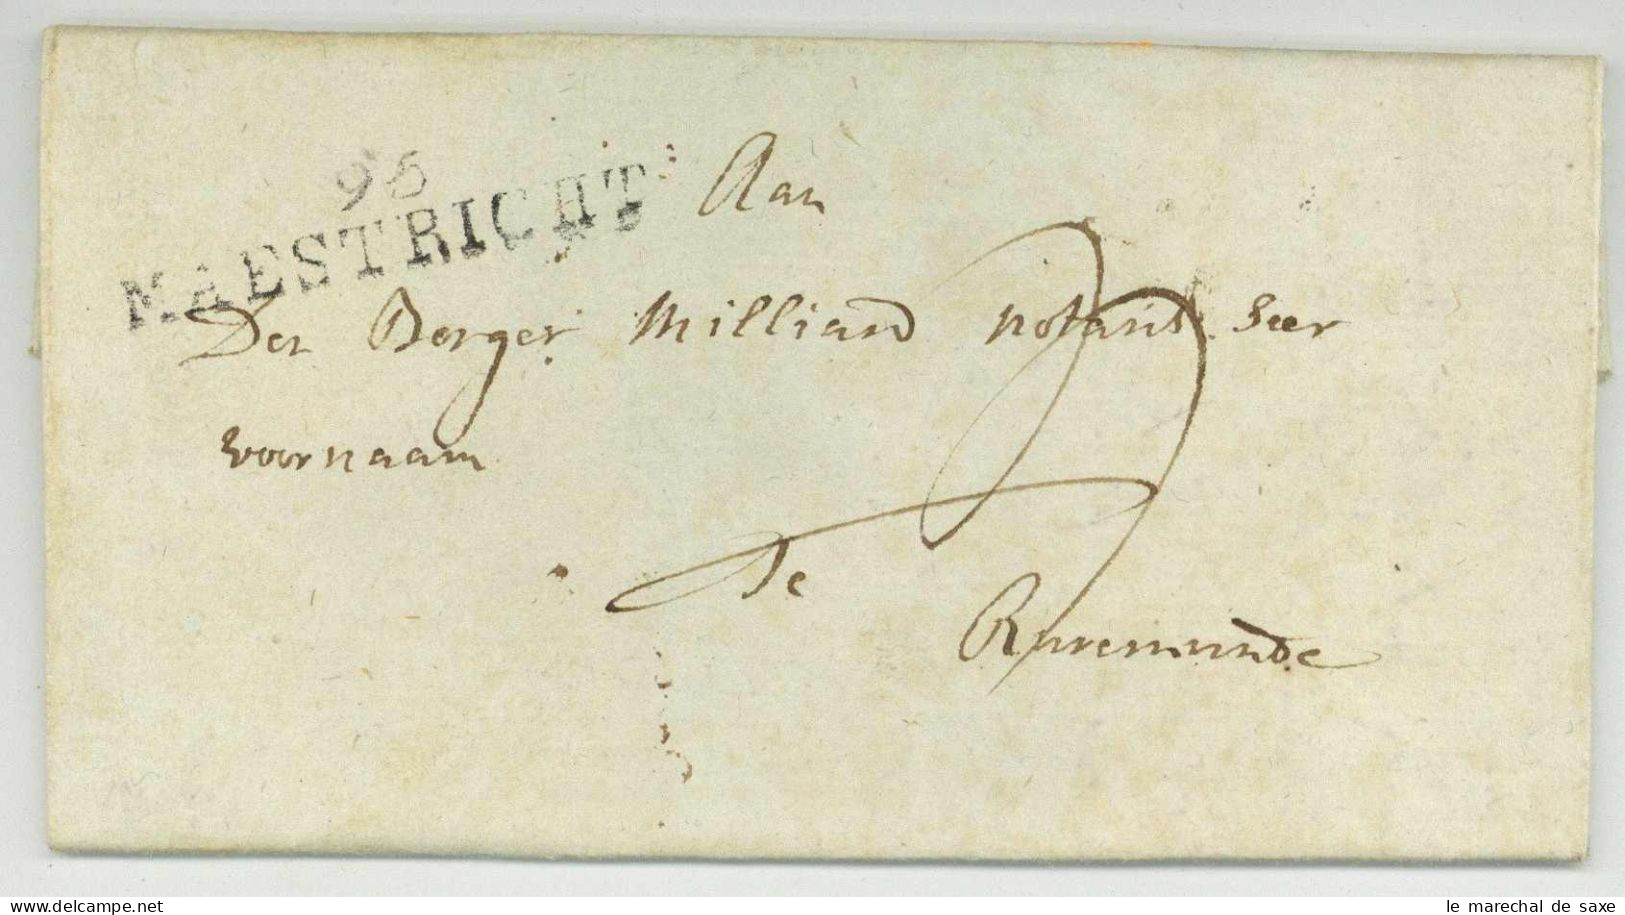 96
MAESTRICHT
Aan
Den Borger Milliard notaris seer
voornaam
Te
Ruremunde
www.delcampe.net
le marechal de saxe